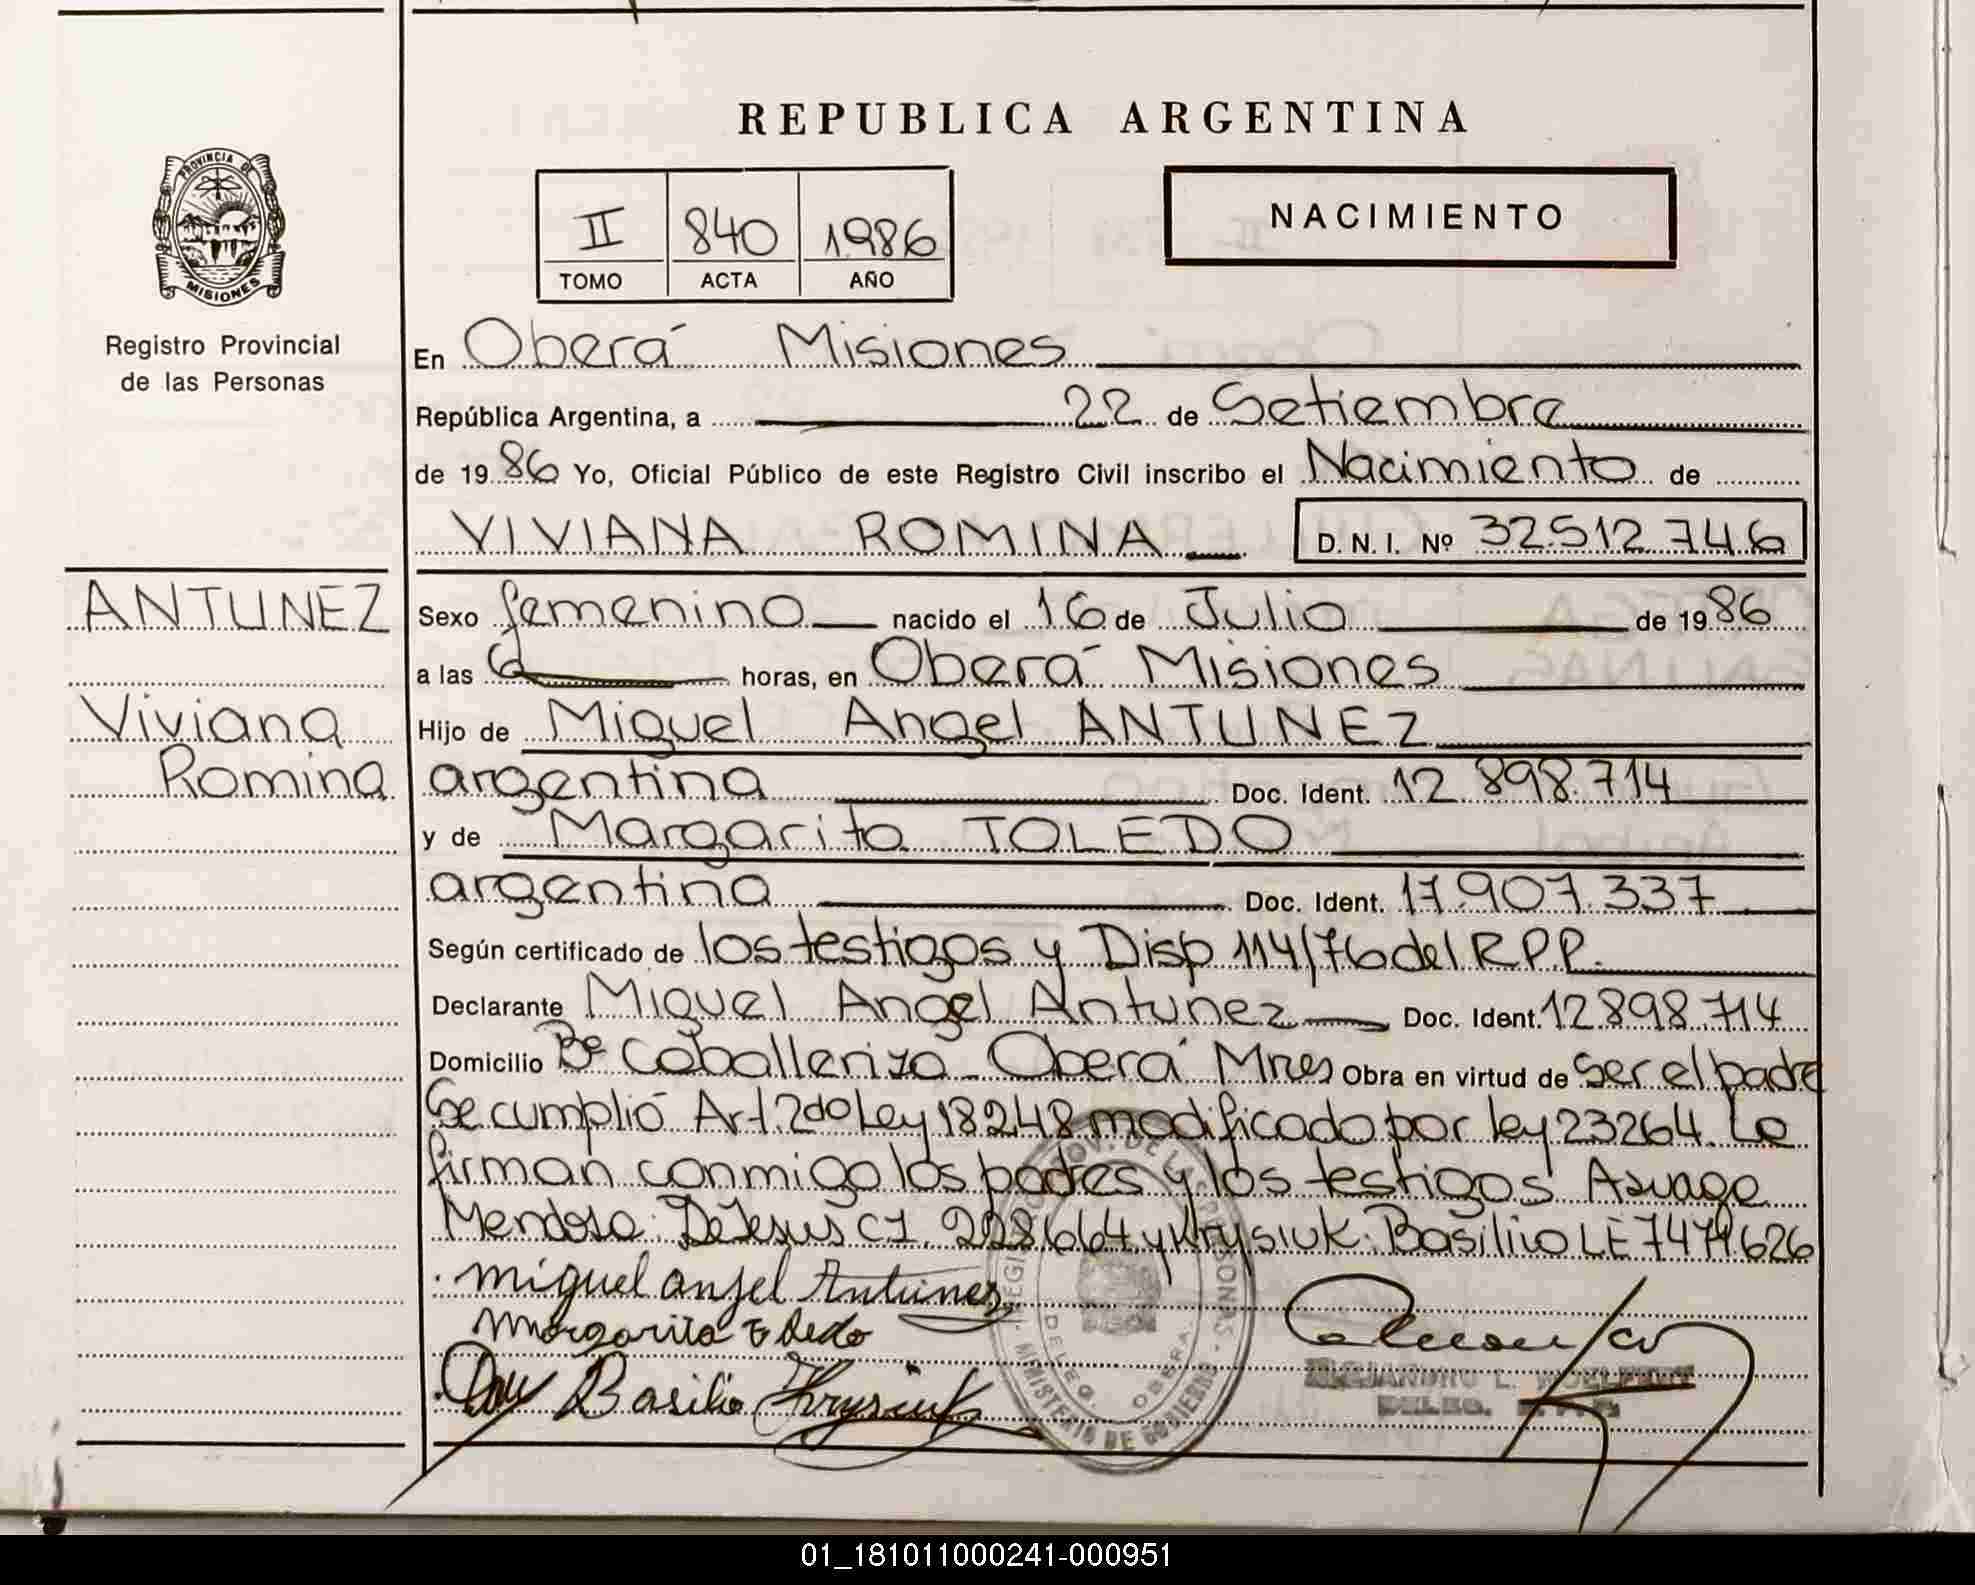 REPUBLICA ARGENTINA
PROVINCIA DE
MISIONES
Registro Provincial
de las Personas
II 840 1986
TOMO ACTA AÑO
NACIMIENTO
En Oberá Misiones
República Argentina, a 22 de Setiembre
de 1986 Yo, Oficial Público de este Registro Civil inscribo el Nacimiento de
VIVIANA ROMINA D. N. I. Nº 32512.746
ANTUNEZ
Viviana
Romina
Sexo femenino nacido el 16 de Julio de 1986
a las 6 horas, en Oberá Misiones
Hijo de Miguel Angel ANTUNEZ
argentina Doc. Ident. 12.898.714
y de Margarita TOLEDO
argentina Doc. Ident. 17.907.337
Según certificado de los testigos y Disp 114/76 del RPP.
Declarante Miguel Angel Antunez Doc. Ident. 12898.714
Domicilio Bº Caballeriza - Oberá Mnes Obra en virtud de ser el padre
Se cumplió Art. 2do Ley 18248 modificado por ley 23264. La
firman conmigo los padres y los testigos Azuaga
Mendoza: De Jesus C I. 228664 y Krysiuk: Basilio LE 7474626
miguel anjel Antunez
Margarita toledo
Basilio Krysiuk
REGISTRO PROV. DE LAS PERSONAS
DELEG. OBERA
MINISTERIO DE GOBIERNO
01_181011000241-000951